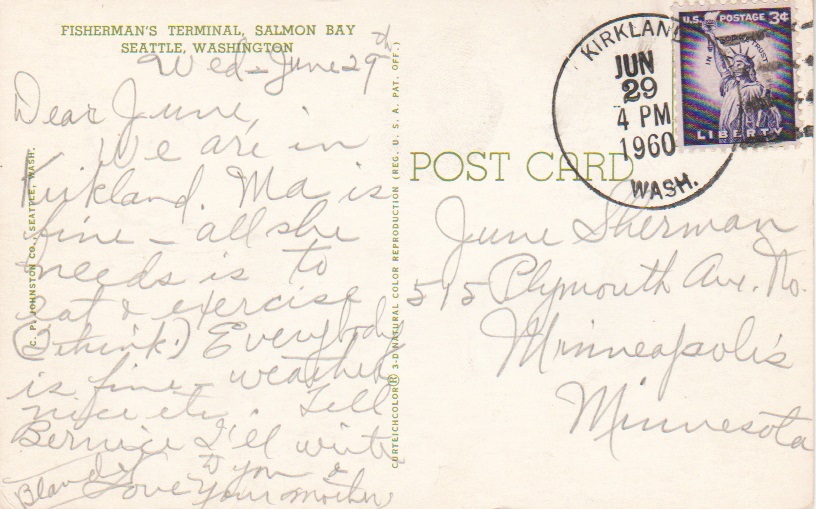 FISHERMAN'S TERMINAL, SALMON BAY
SEATTLE, WASHINGTON
Wed - June 29th
Dear June,
We are in
Kirkland. Ma is
fine - all she
needs is to
eat & exercise
(I think.) Everybody
is fine - weather
nice etc. Tell
Bernice I'll write
to you &
Love Your mother
C. P. JOHNSTON CO., SEATTLE, WASH.
CURTEICHCOLOR® 3-D NATURAL COLOR REPRODUCTION (REG. U. S. A. PAT. OFF.)
POST CARD
KIRKLAND
JUN
29
4 PM
1960
WASH.
U.S. POSTAGE 3¢
IN GOD WE TRUST
LIBERTY
June Sherman
515 Plymouth Ave. No.
Minneapolis
Minnesota